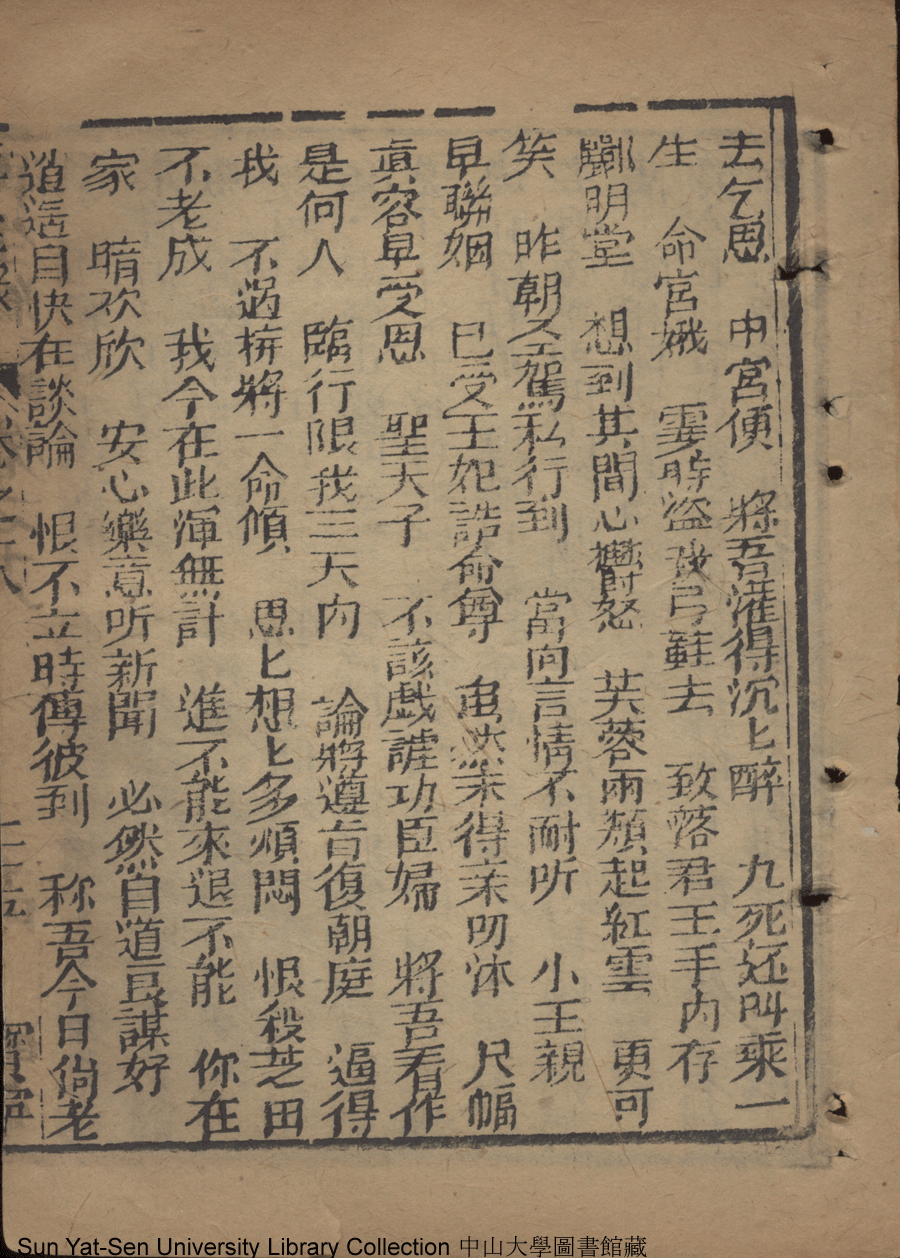 去乞恩　中宮便　將吾灌得沉匕醉　九死还叫乘一
生　命宮娥　霎時盜我弓鞋去　致落君王手內存
酈明堂　想到其間心欝怒　芙蓉兩頰起紅雲　更可
笑　昨朝圣駕私行到　當向言情不耐听　小王親
早聯姻　巳受王妃誥命尊　虽然未得亲叨沐　尺幅
真容早受恩　聖天子　不該戯謔功臣婦　將吾看作
是何人　臨行限我三天內　論將遵旨復朝庭　逼得
我　不过拚將一命傾　思匕想匕多煩悶　恨殺芝田
不老成　我今在此渾無計　進不能來退不能　你在
家　暗欢欣　安心樂意听新聞　必然自道良謀好
道遥自快在談論　恨不立時傳彼到　称吾今日倘老
卷之十八　二十五